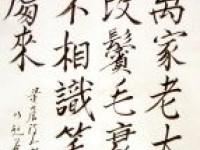 家老大
改鬢毛衰
不相識笑
處來